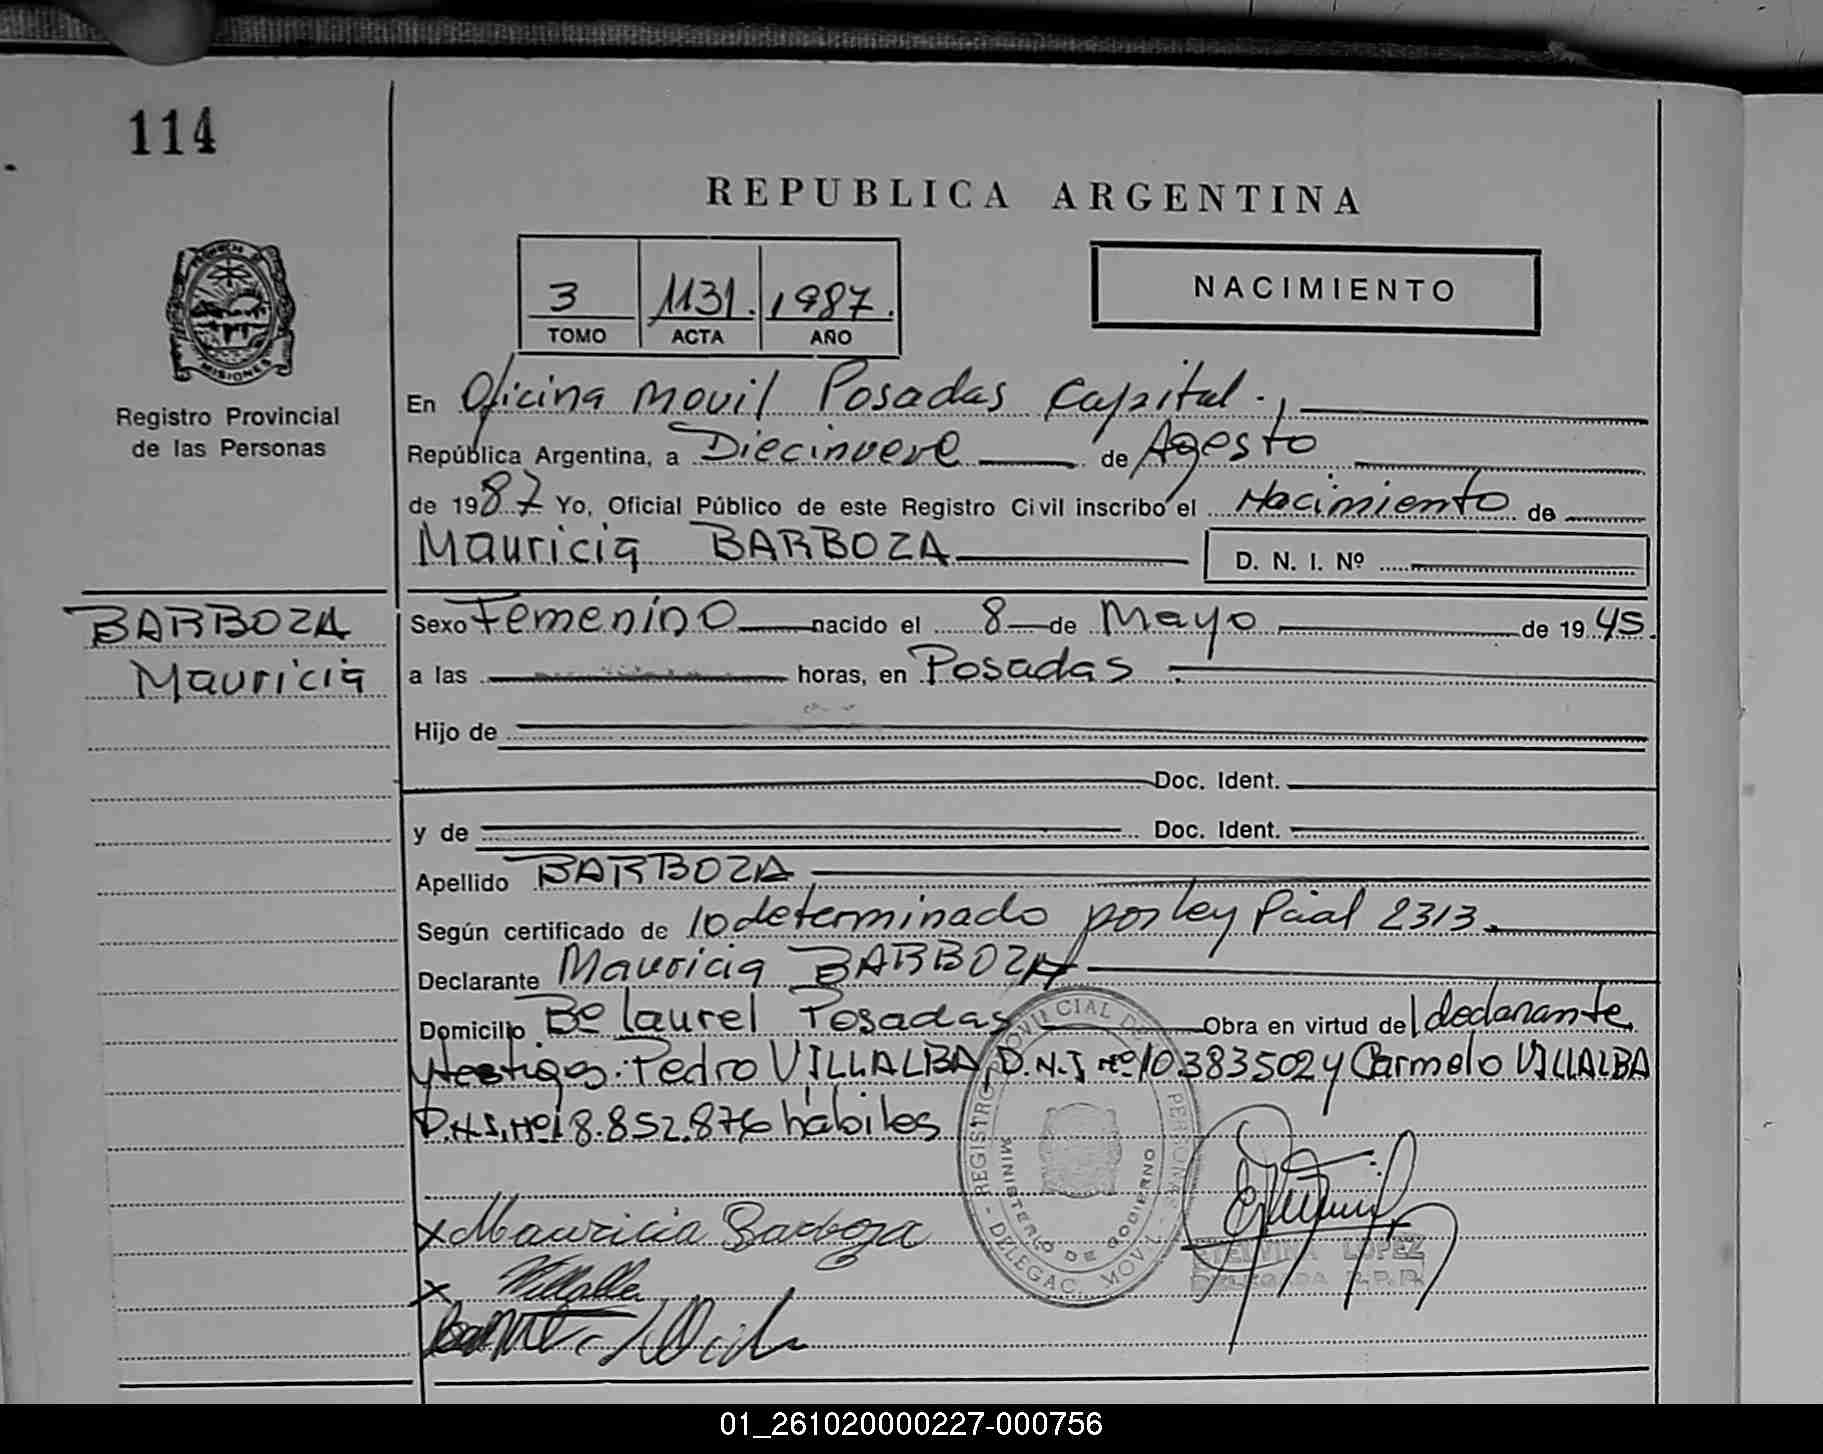 114
REPUBLICA ARGENTINA
3 1131. 1987.
TOMO ACTA AÑO
NACIMIENTO
MISIONES
Registro Provincial
de las Personas
En Oficina Movil Posadas Capital.,
República Argentina, a Diecinueve de Agosto
de 1987 Yo, Oficial Público de este Registro Civil inscribo el Nacimiento de
Mauricia BARBOZA D. N. I. Nº
BARBOZA
Mauricia
Sexo Femenino nacido el 8 de Mayo de 1945.
a las horas, en Posadas.
Hijo de
Doc. Ident.
y de Doc. Ident.
Apellido BARBOZA
Según certificado de lo determinado por ley Pcial 2313.
Declarante Mauricia BARBOZA
Domicilio Bº Laurel Posadas Obra en virtud del declarante
y testigos: Pedro VILLALBA, D.N.I Nº 10.383502 y Carmelo VILLALBA
D.N.I. Nº 18.852.876 hábiles
REGISTRO PROVINCIAL DE PERSONAS - DELEGAC. MOVIL -
MINISTERIO DE GOBIERNO
x Mauricia Barboza
x Villalba
TELVINA LOPEZ
DELEGADA R.P.P.
01_261020000227-000756